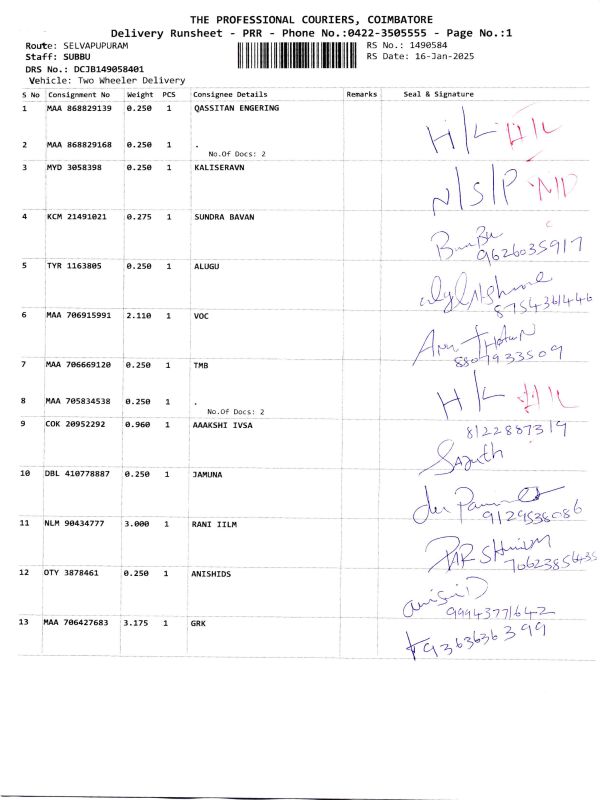 THE PROFESSIONAL COURIERS, COIMBATORE
Delivery Runsheet - PRR - Phone No.:0422-3505555 - Page No.:1
Route: SELVAPUPURAM
RS No.: 1490584
Staff: SUBBU
RS Date: 16-Jan-2025
DRS No.: DCJB149058401
Vehicle: Two Wheeler Delivery
S No Consignment No Weight PCS Consignee Details Remarks Seal & Signature
1 MAA 868829139 0.250 1 QASSITAN ENGERING
H/L H/L
2 MAA 868829168 0.250 1 .
No.Of Docs: 2
3 MYD 3058398 0.250 1 KALISERAVN
N/S/P
4 KCM 21491021 0.275 1 SUNDRA BAVAN
9626035917
5 TYR 1163805 0.250 1 ALUGU
8754361446
6 MAA 706915991 2.110 1 VOC
8807933509
7 MAA 706669120 0.250 1 TMB
H/L H/L
8 MAA 705834538 0.250 1 .
No.Of Docs: 2
9 COK 20952292 0.960 1 AAAKSHI IVSA
8122887319
10 DBL 410778887 0.250 1 JAMUNA
9129538086
11 NLM 90434777 3.000 1 RANI IILM
7062385435
12 OTY 3878461 0.250 1 ANISHIDS
9994377642
13 MAA 706427683 3.175 1 GRK
9363636399